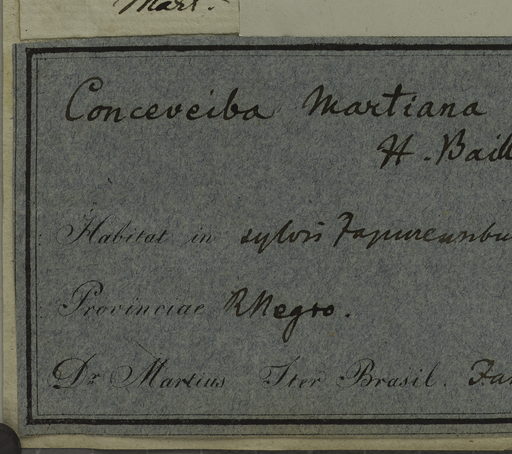 Mart.
Conceveiba Martiana
H. Baill
Habitat in sylvis Japurensibu
Provinciae RNegro.
Dr. Martius Iter Brasil. Jan